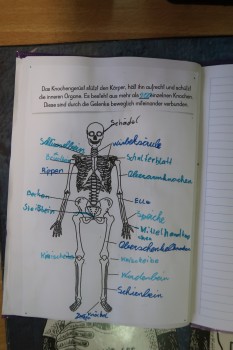 Das Knochengerüst stützt den Körper, hält ihn aufrecht und schützt
die inneren Organe. Es besteht aus mehr als 200 einzelnen Knochen.
Diese sind durch die Gelenke beweglich miteinander verbunden.
Schädel
Schlüsselbein
Wirbelsäule
Schulterblatt
Rippen
Oberarmknochen
Becken
Elle
Steißbein
Speiche
Mittelhand
Oberschenkelknochen
Kniescheibe
Wadenbein
Schienbein